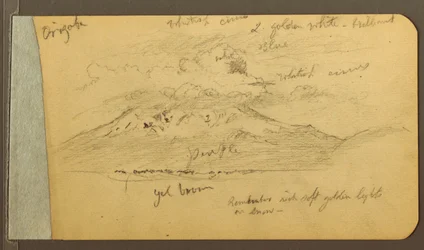 Orizaba
Whitish cirrus
& golden white - brilliant
blue
whitish cirrus
purple
yel brown
with soft golden lights
on snow -